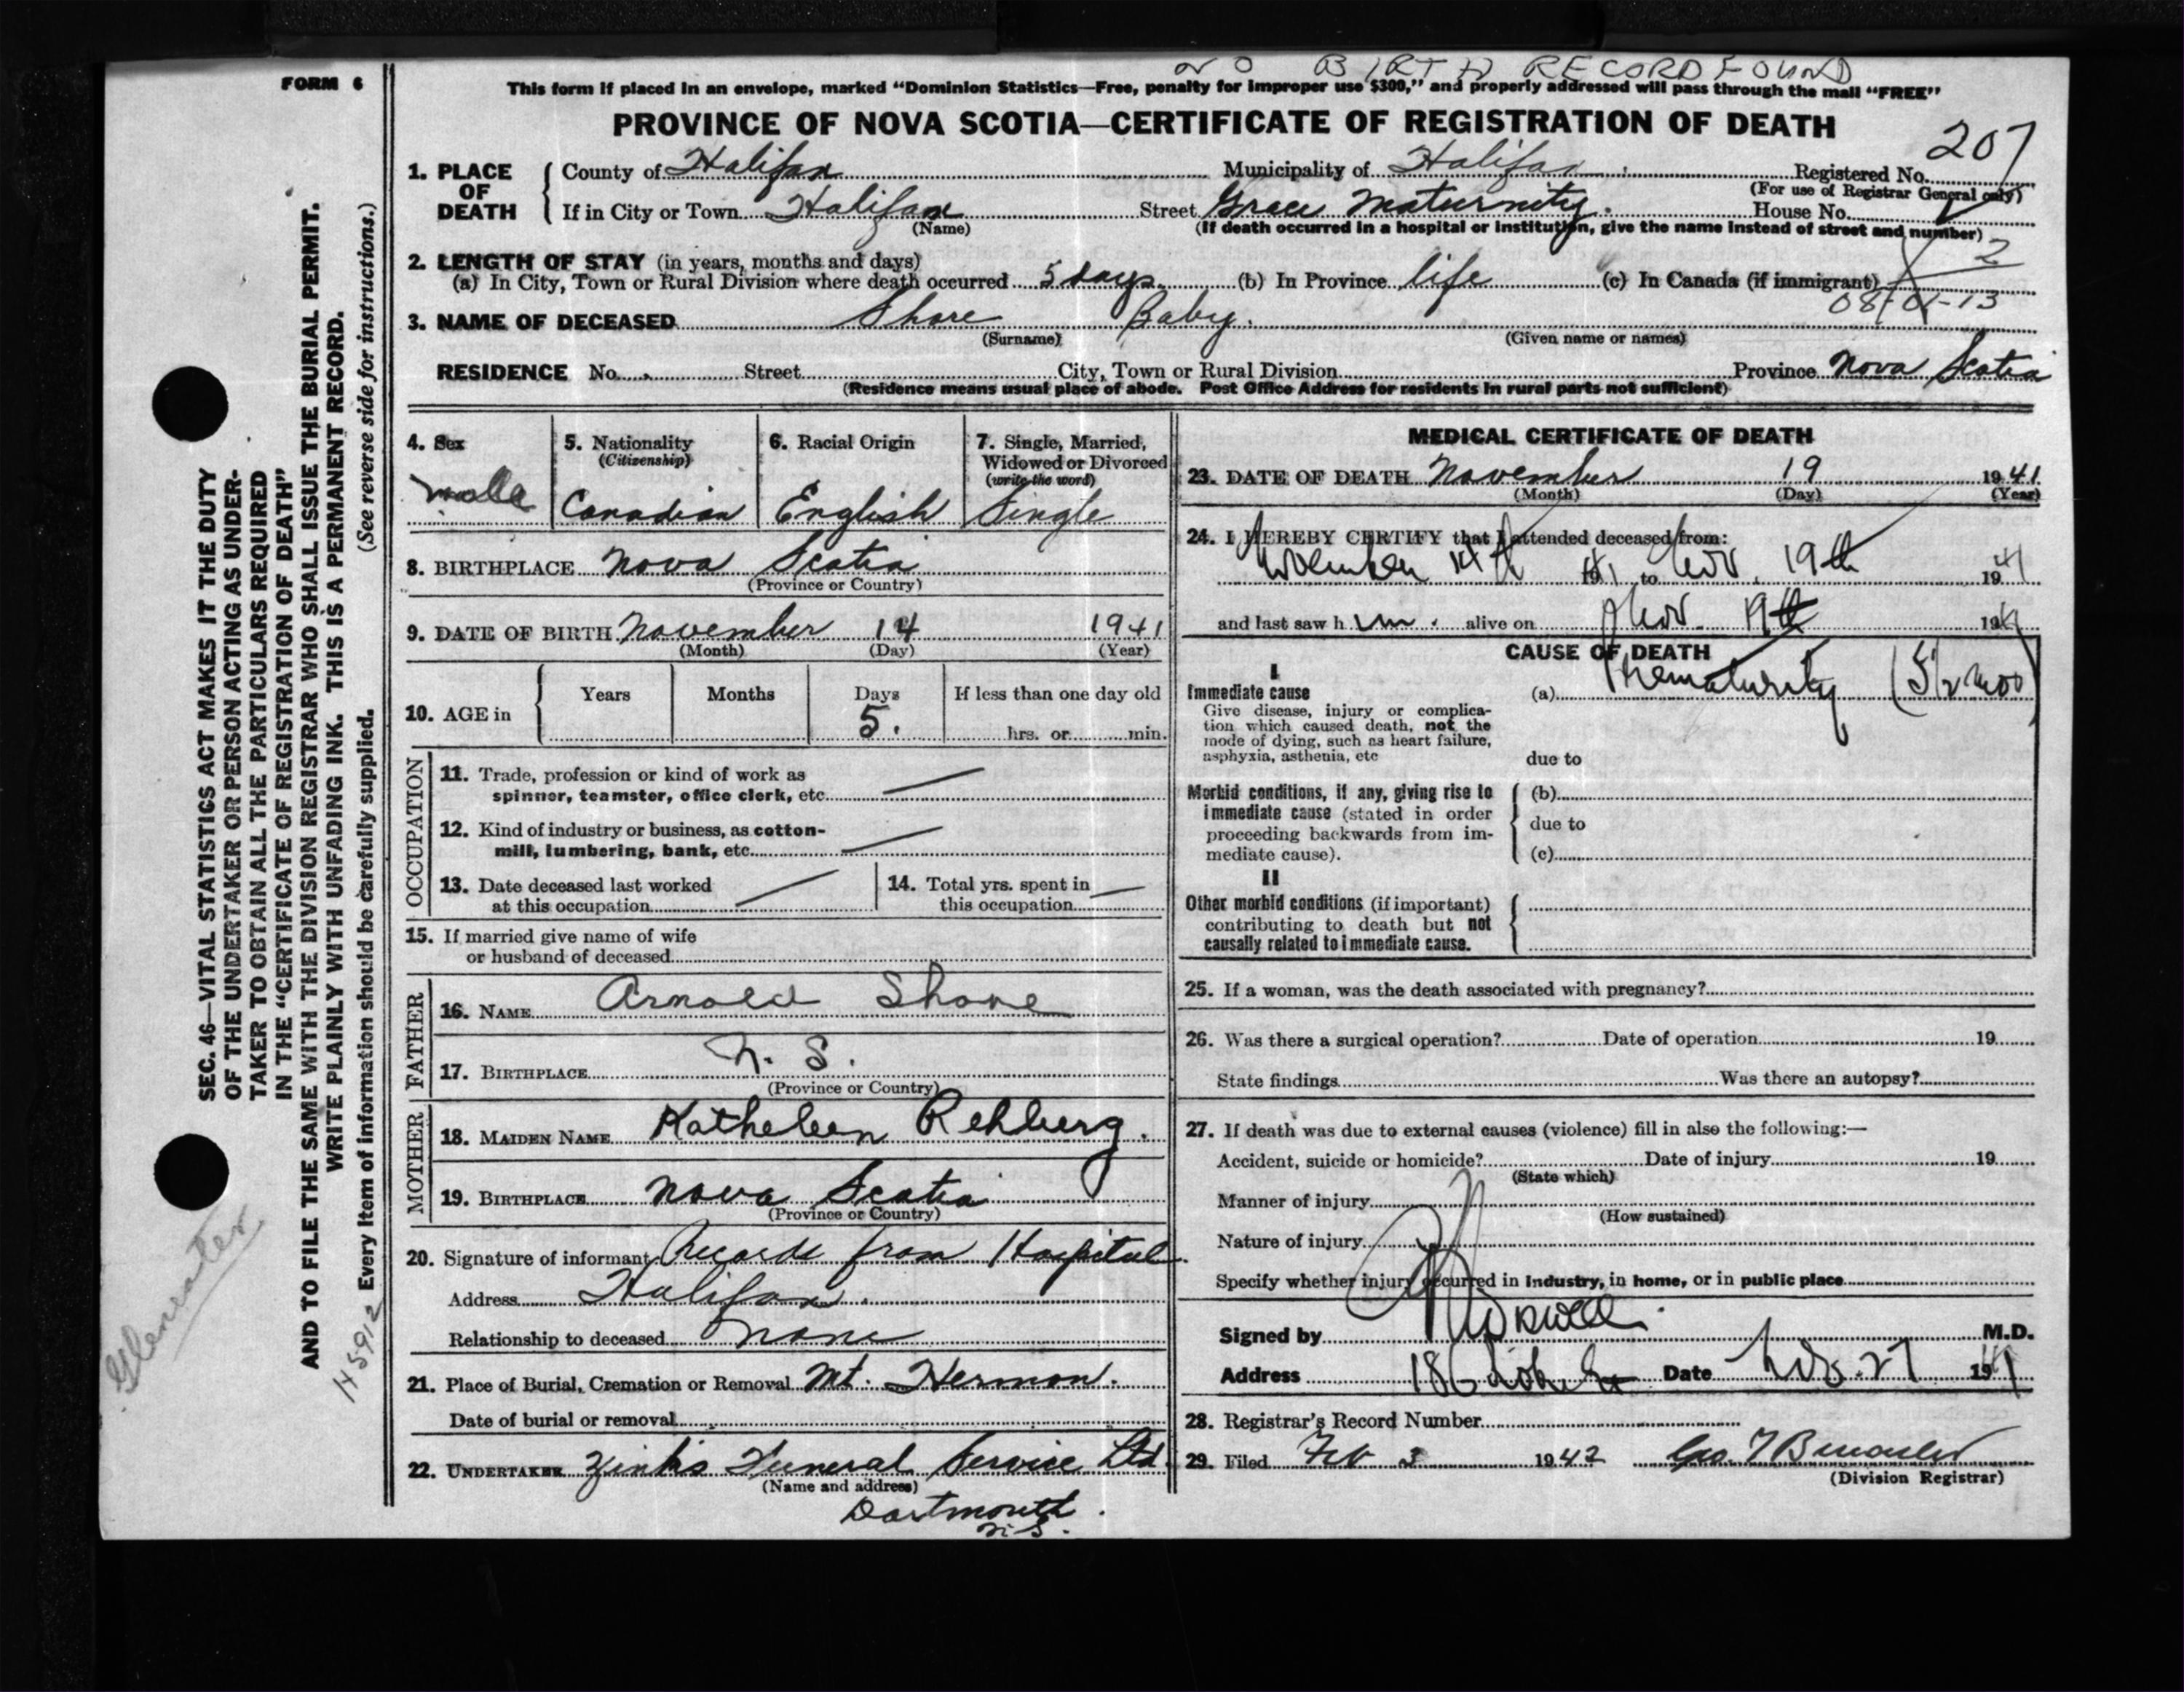 NO BIRTH RECORD FOUND
FORM 6
This form if placed in an envelope, marked "Dominion Statistics—Free, penalty for improper use $300," and properly addressed will pass through the mail "FREE"
PROVINCE OF NOVA SCOTIA—CERTIFICATE OF REGISTRATION OF DEATH
207
1. PLACE OF DEATH County of Halifax Municipality of Halifax Registered No.
(For use of Registrar General only)
If in City or Town Halifax Street Grace Maturnity. House No.
(Name) (If death occurred in a hospital or institution, give the name instead of street and number)
2. LENGTH OF STAY (in years, months and days)
2
(a) In City, Town or Rural Division where death occurred 5 days. (b) In Province life (c) In Canada (if immigrant)
08-01-13
3. NAME OF DECEASED Shore Baby.
(Surname) (Given name or names)
RESIDENCE No. Street City, Town or Rural Division Province Nova Scotia
(Residence means usual place of abode. Post Office Address for residents in rural parts not sufficient)
4. Sex
male
5. Nationality
(Citizenship)
Canadian
6. Racial Origin
English
7. Single, Married,
Widowed or Divorced
(write the word)
Single
8. BIRTHPLACE Nova Scotia
(Province or Country)
9. DATE OF BIRTH November 14 1941
(Month) (Day) (Year)
10. AGE in Years Months Days If less than one day old
5. hrs. or min.
OCCUPATION
11. Trade, profession or kind of work as
spinner, teamster, office clerk, etc.
12. Kind of industry or business, as cotton-
mill, lumbering, bank, etc.
13. Date deceased last worked
at this occupation
14. Total yrs. spent in
this occupation
15. If married give name of wife
or husband of deceased
FATHER
16. NAME Arnold Shore
17. BIRTHPLACE N. S.
(Province or Country)
MOTHER
18. MAIDEN NAME Katheleen Rehberg.
19. BIRTHPLACE Nova Scotia
(Province or Country)
20. Signature of informant Records from Hospital.
Address Halifax.
Relationship to deceased none
21. Place of Burial, Cremation or Removal Mt. Hermon.
Date of burial or removal
22. UNDERTAKER Zink's Funeral Service Ltd.
(Name and address)
Dartmouth.
N.S.
MEDICAL CERTIFICATE OF DEATH
23. DATE OF DEATH November 19 1941
(Month) (Day) (Year)
24. I HEREBY CERTIFY that I attended deceased from:
November 14th 1941 to Nov. 19th 1941
and last saw him. alive on Nov. 19th 1941
CAUSE OF DEATH
I
Immediate cause
Give disease, injury or complica-
tion which caused death, not the
mode of dying, such as heart failure,
asphyxia, asthenia, etc
(a) Prematurity (5 1/2 mos)
due to
Morbid conditions, if any, giving rise to
immediate cause (stated in order
proceeding backwards from im-
mediate cause).
(b)
due to
(c)
II
Other morbid conditions (if important)
contributing to death but not
causally related to immediate cause.
25. If a woman, was the death associated with pregnancy?
26. Was there a surgical operation? Date of operation 19
State findings Was there an autopsy?
27. If death was due to external causes (violence) fill in also the following:—
Accident, suicide or homicide? Date of injury 19
(State which)
Manner of injury
(How sustained)
Nature of injury
Specify whether injury occurred in industry, in home, or in public place
Signed by M.D.
Address 186 Date Nov. 27 1941
28. Registrar's Record Number
29. Filed Feb 3 1942 Geo.
(Division Registrar)
SEC. 46—VITAL STATISTICS ACT MAKES IT THE DUTY
OF THE UNDERTAKER OR PERSON ACTING AS UNDER-
TAKER TO OBTAIN ALL THE PARTICULARS REQUIRED
IN THE "CERTIFICATE OF REGISTRATION OF DEATH"
AND TO FILE THE SAME WITH THE DIVISION REGISTRAR WHO SHALL ISSUE THE BURIAL PERMIT.
WRITE PLAINLY WITH UNFADING INK. THIS IS A PERMANENT RECORD.
Every item of information should be carefully supplied. (See reverse side for instructions.)
145912